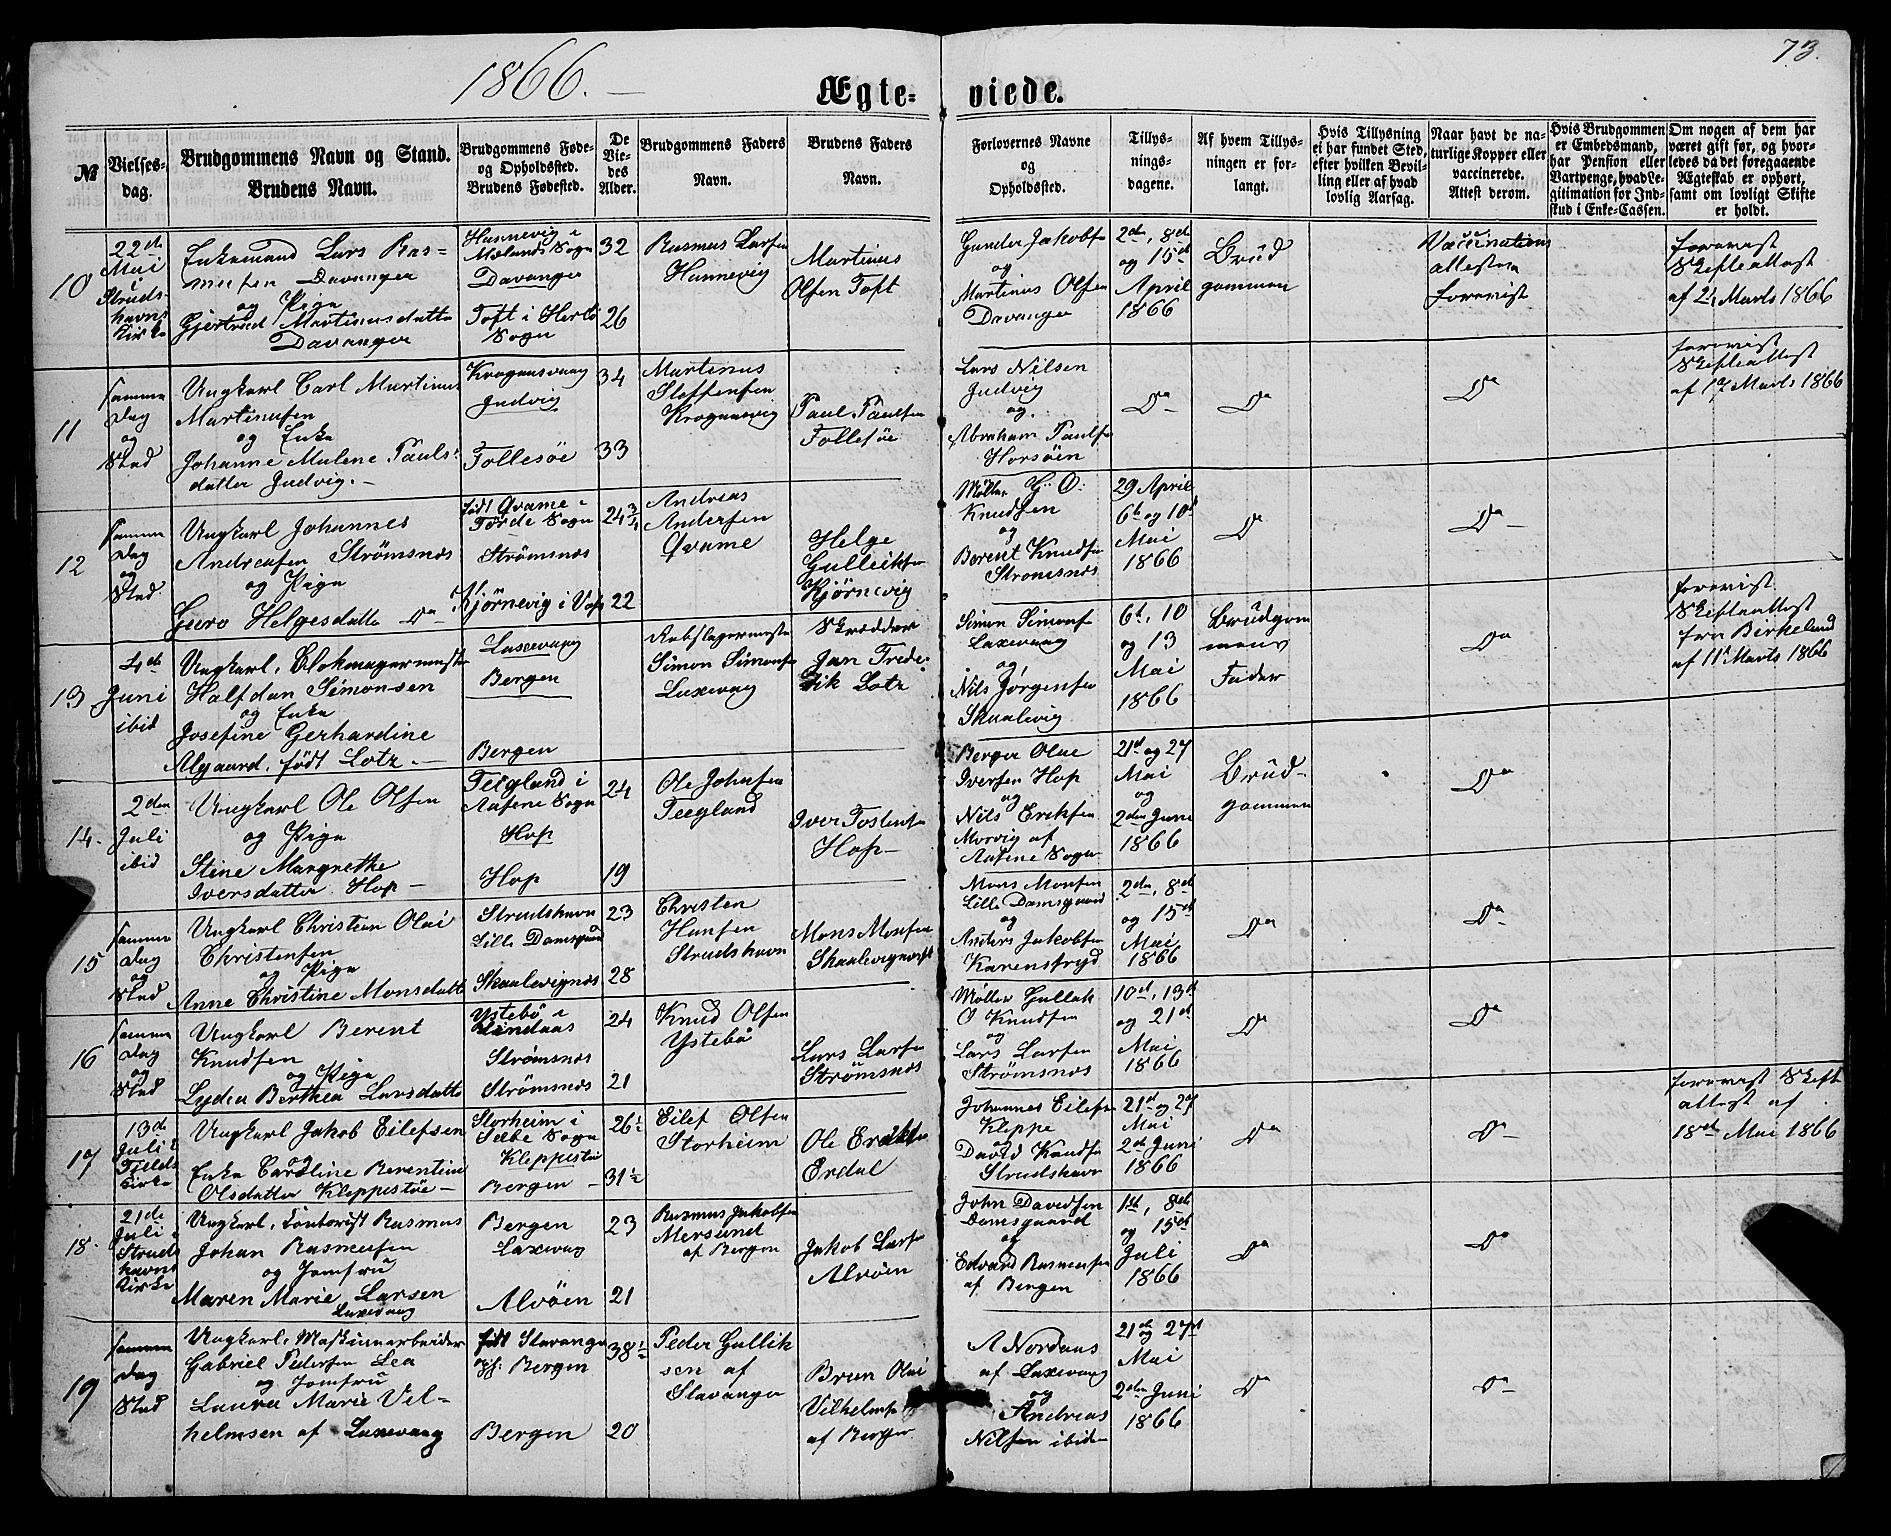 1866.
73.
Ægte-
viede.
№
Vielses-
dag.
Brudgommens Navn og Stand.
Brudens Navn.
Brudgommens Føde-
og Opholdssted.
Brudens Fødested.
De
Vie-
des
Alder.
Brudgommens Faders
Navn.
Brudens Faders
Navn.
Forlovernes Navne
og
Opholdssted.
Tillys-
nings-
dagene.
Af hvem Tillys-
ningen er for-
langt.
Hvis Tillysning
ei har fundet Sted,
efter hvilken Bevil-
ling eller af hvad
lovlig Aarsag.
Naar havt de na-
turlige Kopper eller
vaccinerede.
Attest derom.
Hvis Brudgommen
er Embedsmand,
har Pension eller
Vartpenge, hvad Le-
gitimation for Ind-
skud i Enke-Cassen.
Om nogen af dem har
været gift før, og hvor-
ledes da det foregaaende
Ægteskab er ophørt,
samt om lovligt Skifte
er holdt.
10
22de
Mai
Struds-
havns
Kirke
Enkemand Lars Ras-
musen Davanger
og Pige
Gjertrud Martinusdatte
Davanger
Hannevig i
Mælands Sogn
Davanger
Toft i Herlø
Sogn
32
26
Rasmus Larsen
Hannevig
Martinus
Olsen Toft
Gunder Jakobsen
og
Martinus Olsen
Davanger
2de, 8de
og 15de
April
1866
Brud
gommen
Vaccinations
attester
forevist
forevist
Skifteattest
af 21 Marts 1866
11
samme
Dag
og
Sted
Ungkarl Carl Martinus
Martinusen
og Enke
Johanne Malene Pauls-
datter Judvig.-
Krogaasvaag
Judvig
Follesøe
34
33
Martinus
Steffensen
Krogaasvig
Paul Paulsen
Follesøe
Lars Nilsen
Judvig
og
Abraham Paulsen
Horsøen
Do
Do
Do
forevist
Skifteattest
af 17 Marts 1866
12
samme
Dag
og
Sted
Ungkarl Johannes
Andreasen Strømsnæs
og Pige
Guro Helgesdatte Do
født Qvame i
Førde Sogn
Strømsnæs
Kjørnevig i Vos
24¾
22
Andreas
Andersen
Qvame
Helge
Gulleiksen
Kjørnevig
Møller G. O.
Knudsen
og
Berent Knudsen
Strømsnæs
29 April
6te og 10de
Mai
1866
Do
Do
13
4de
Juni
ibid
Ungkarl, Blokmagermester
Halfdan Simonsen
og Enke
Josefine Gerhardine
Algaard, født Lotz.-
Laxevaag
Bergen
Bergen
Rebslagermester
Simon Simonsen
Laxevaag
Skrædder
Jan Frede-
rik Lotz
Simon Simonsen
Laxevaag
og
Nils Jørgensen
Skaalevig
6te, 10
og 13
Mai
1866
Brudgom
mens
Fader
Do
forevist
Skifteattest
fra Birkeland
af 11te Marts 1866
14.
2den
Juli
ibid
Ungkarl Ole Olsen
og Pige
Stine Margrethe
Iversdatter Hop-
Teigland i
Aasene Sogn
Hop
Hop
24
19
Ole Johnsen
Teigland
Iver Tostensen
Hop-
Berger Olae
Iversen Hop
og
Nils Eriksen
Morvig af
Aasene Sogn
21de og 27
Mai
og
2den Juni
1866
Brud-
gommen
Do
15
samme
Dag
og
Sted
Ungkarl Christian Olai
Christensen
og Pige
Anne Christine Monsdatte
Strudshavn
Lille Damsgaard
Skaalevignæs
23
28
Christen
Hansen
Strudshavn
Mons Monsen
Skaalevignæs
Mons Monsen
Lille Damsgaard
og
Anders Jakobsen
Karensfryd
2den, 8de
og 15de
Mai
1866
Do
Do
16
samme
Dag
og
Sted
Ungkarl Berent
Knudsen
og Pige
Lydea Berthea Larsdatte
Ystebø i
Lindaas
Strømsnæs
Strømsnæs
24
21
Knud Olsen
Ystebø
Lars Larsen
Strømsnæs
Møller Gullak
O Knudsen
og
Lars Larsen
Strømsnæs
10de, 13de
og 21de
Mai
1866
Do
Do
17
13de
Juli i
Fjelds
Kirke
Ungkarl Jakob Eilefsen
og
Enke Caroline Berentine
Olsdatter Kleppestøe-
Storheim i
Sæbø Sogn
Kleppestøe
Bergen-
26½
31½
Eilef Olsen
Storheim
Ole Eriksen
Erdal
Johannes Eilefsen
Kleppe
og
David Knudsen
Strudshavn
21de og 27
Mai
2de Juni
1866
Do
Do
forevist Skifte
attest af
18de Mai 1866
18.
21de
Juli i
Struds
havns
Kirke
Ungkarl, Contorist Rasmus
Johan Rasmussen
og Jomfru
Maren Marie Larsen
Laxevaag
Bergen
Laxevaag
Alvøen
23
21
Rasmus Jakobsen
Mersund
af Bergen
Jakob Larsen
Alvøen
John Davidsen
Damsgaard
og
Edvard Rasmussen
af Bergen
1ste, 8de
og 15de
Juli
1866
Do
Do
19
samme
Dag
Sted
Ungkarl, Maskinarbeider
Gabriel Pedersen Lea
og Jomfru
Laura Marie Vil-
helmsen af Laxevaag
født Stavanger
Bergen
Bergen
38½
20
Peder Gullik
sen af
Stavanger
Brun Olai
Vilhelmsen
af Bergen
A Nordaas
af Laxevaag
og
Andreas
Nilsen ibid-
21de og 27de
Mai
2den Juni
1866
Do
Do